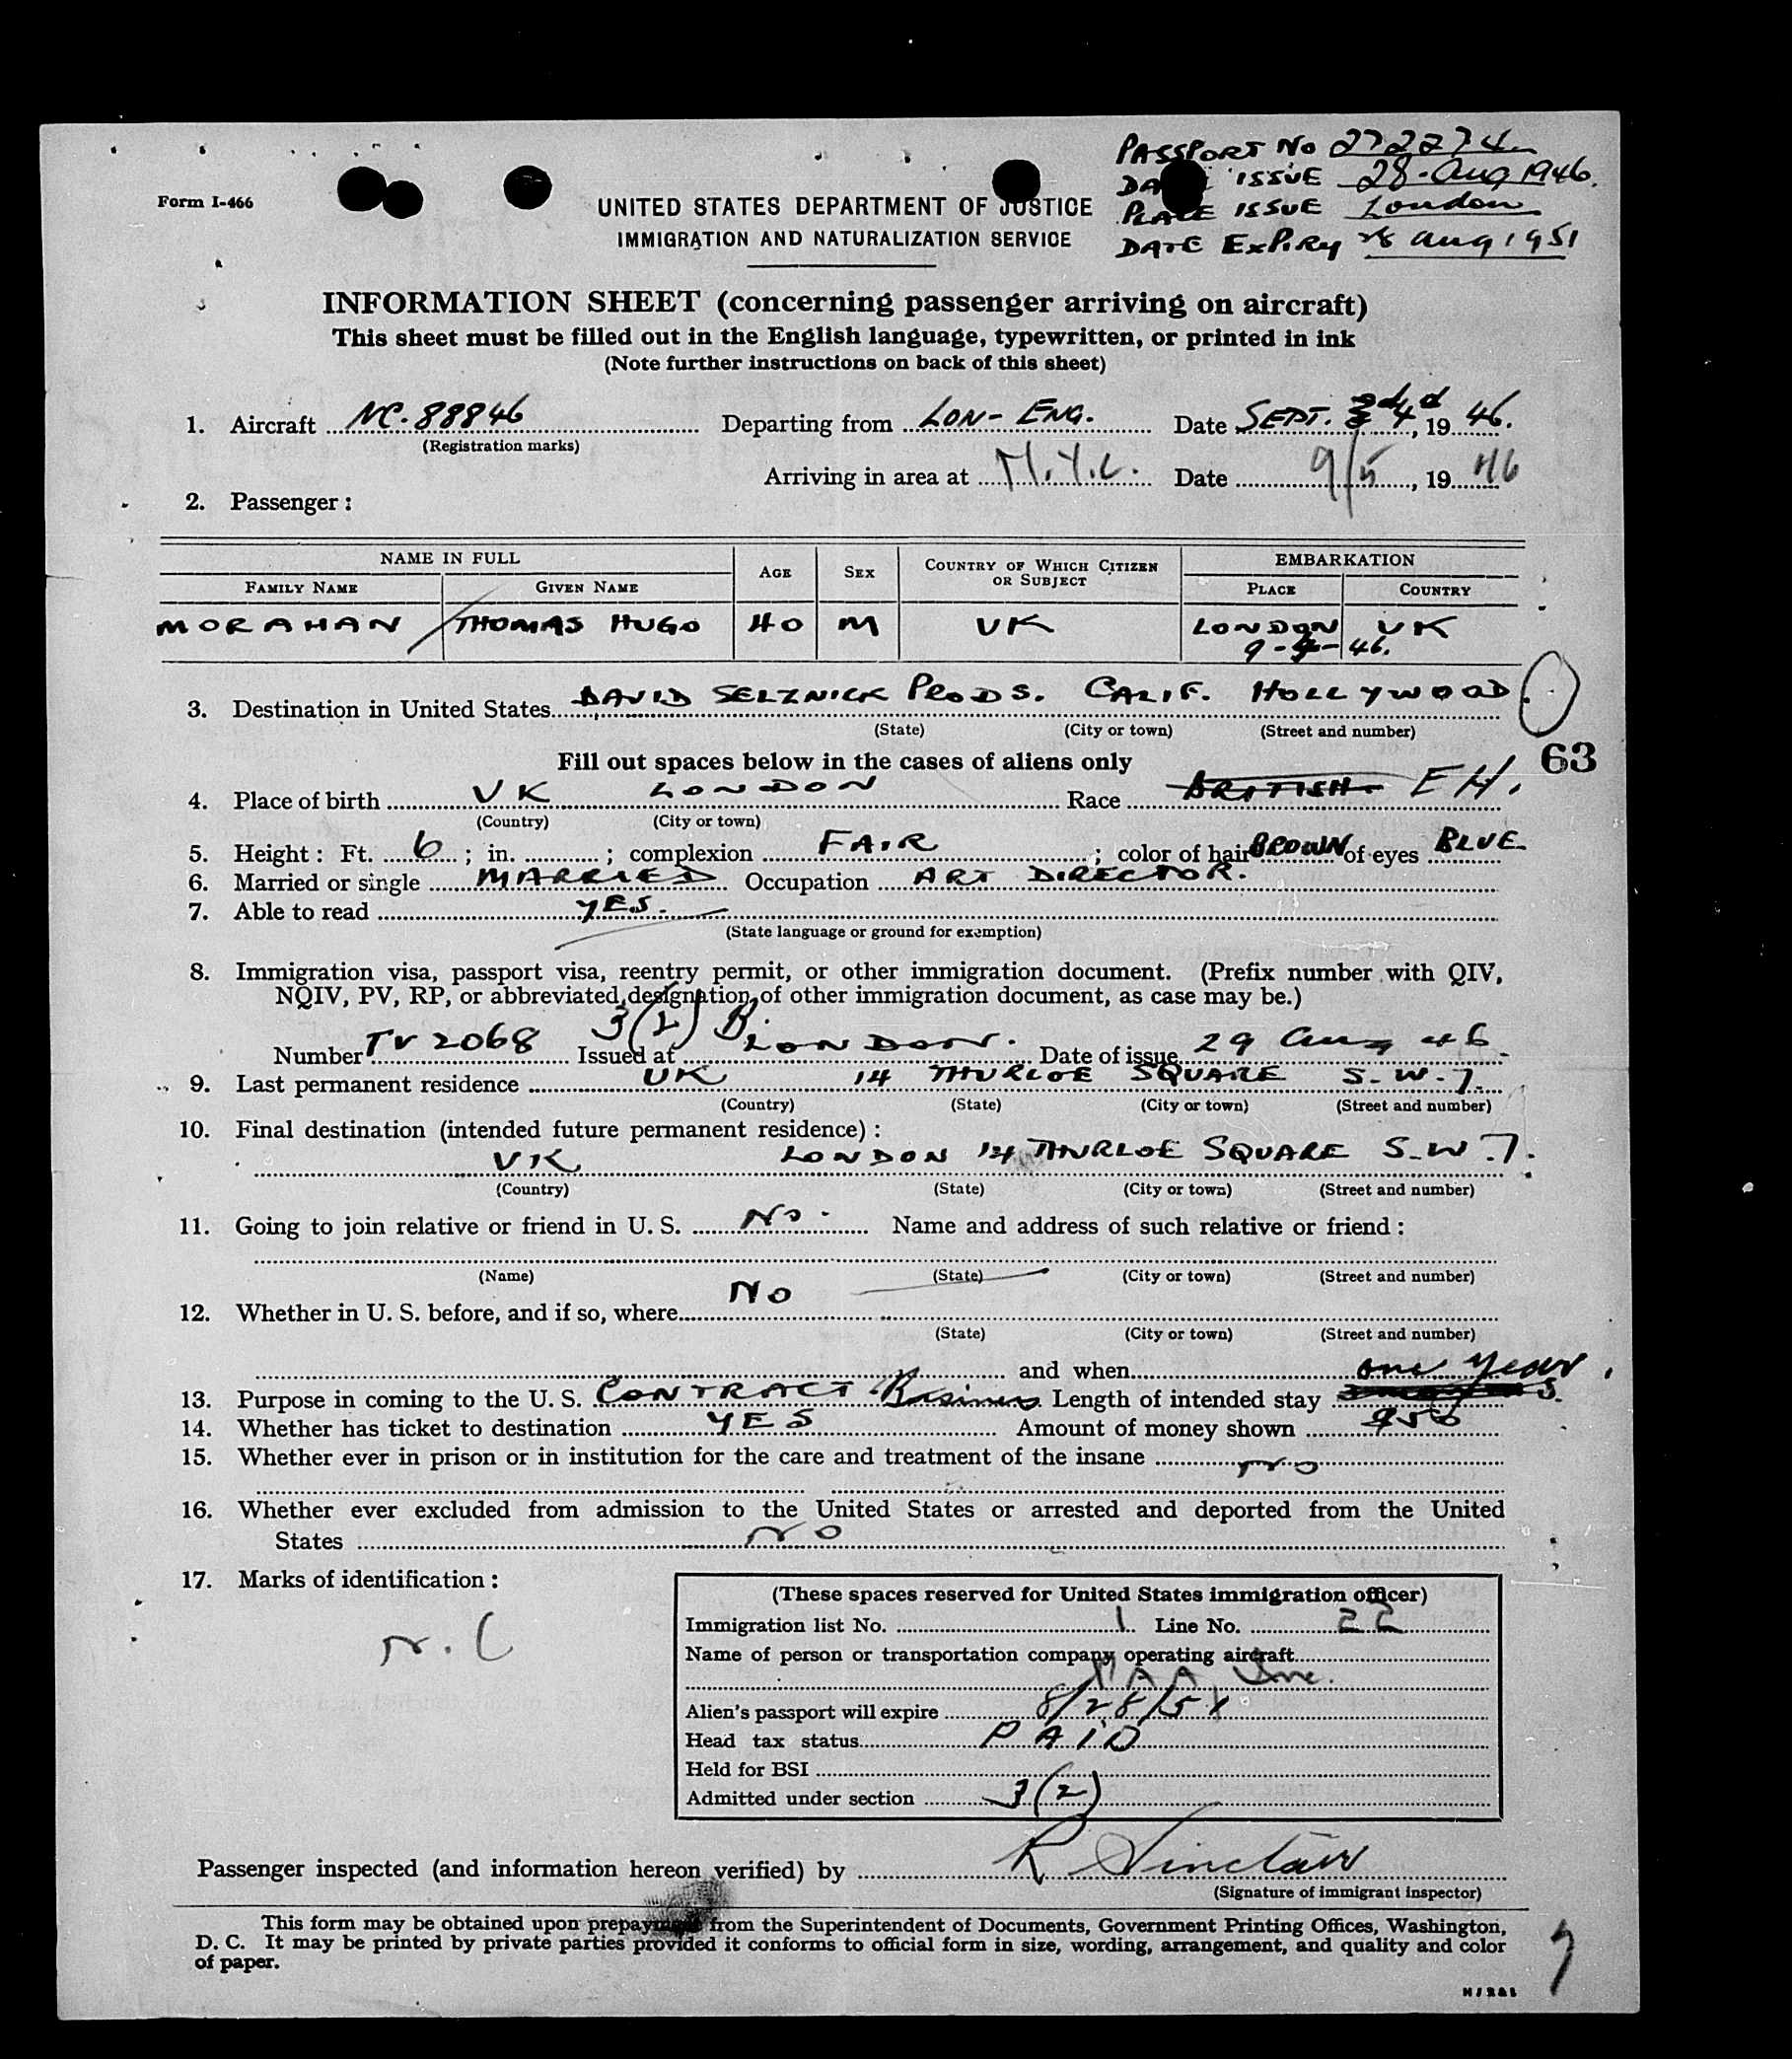 PASSPORT No 272274
Form I-466
DATE ISSUE 28-Aug 1946.
UNITED STATES DEPARTMENT OF JUSTICE
PLACE ISSUE London
IMMIGRATION AND NATURALIZATION SERVICE
DATE EXPIRY 28 Aug 1951
INFORMATION SHEET (concerning passenger arriving on aircraft)
This sheet must be filled out in the English language, typewritten, or printed in ink
(Note further instructions on back of this sheet)
1. Aircraft NC-88846 Departing from LON-ENG. Date SEPT. 4, 1946.
(Registration marks)
Arriving in area at N.Y.C. Date 9/5, 1946
2. Passenger:
NAME IN FULL AGE SEX COUNTRY OF WHICH CITIZEN OR SUBJECT EMBARKATION
FAMILY NAME GIVEN NAME PLACE COUNTRY
MORAHAN THOMAS HUGO 40 M UK LONDON UK
9-4-46.
3. Destination in United States DAVID SELZNICK PRODS. CALIF. HOLLYWOOD.
(State) (City or town) (Street and number)
Fill out spaces below in the cases of aliens only 63
4. Place of birth UK LONDON Race BRITISH EH.
(Country) (City or town)
5. Height: Ft. 6; in. ; complexion FAIR; color of hair BROWN of eyes BLUE
6. Married or single MARRIED Occupation ART DIRECTOR.
7. Able to read YES.
(State language or ground for exemption)
8. Immigration visa, passport visa, reentry permit, or other immigration document. (Prefix number with QIV,
NQIV, PV, RP, or abbreviated designation of other immigration document, as case may be.)
3(2) B.
Number TV 2068 Issued at LONDON. Date of issue 29 Aug 46.
9. Last permanent residence UK 14 THURLOE SQUARE S.W.7.
(Country) (State) (City or town) (Street and number)
10. Final destination (intended future permanent residence):
UK LONDON 14 THURLOE SQUARE S.W.7.
(Country) (State) (City or town) (Street and number)
11. Going to join relative or friend in U. S. No. Name and address of such relative or friend:
(Name) (State) (City or town) (Street and number)
12. Whether in U. S. before, and if so, where No
(State) (City or town) (Street and number)
and when
one year.
13. Purpose in coming to the U. S. CONTRACT Business Length of intended stay
14. Whether has ticket to destination YES Amount of money shown
15. Whether ever in prison or in institution for the care and treatment of the insane no
16. Whether ever excluded from admission to the United States or arrested and deported from the United
States no
17. Marks of identification:
(These spaces reserved for United States immigration officer)
Immigration list No. 1 Line No. 22
Name of person or transportation company operating aircraft
PAA Inc.
Alien's passport will expire 8/28/51
Head tax status PAID
Held for BSI
Admitted under section 3(2)
Passenger inspected (and information hereon verified) by R Sinclair
(Signature of immigrant inspector)
This form may be obtained upon prepayment from the Superintendent of Documents, Government Printing Offices, Washington,
D. C. It may be printed by private parties provided it conforms to official form in size, wording, arrangement, and quality and color
of paper.